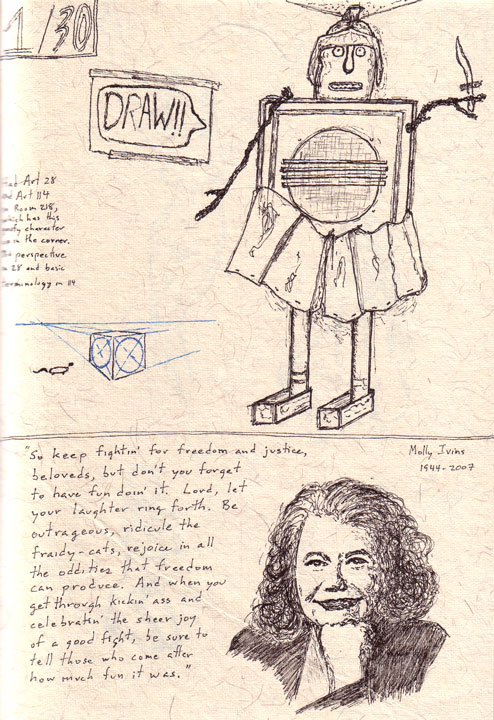 1/30
DRAW!!
Art 28
Art 114
Room 218,
which has this
character
in the corner.
perspective
28 and basic
terminology in 114
"So keep fightin' for freedom and justice,
beloveds, but don't you forget
to have fun doin' it. Lord, let
your laughter ring forth. Be
outrageous, ridicule the
fraidy-cats, rejoice in all
the oddities that freedom
can produce. And when you
get through kickin' ass and
celebratin' the sheer joy
of a good fight, be sure to
tell those who come after
how much fun it was."
Molly Ivins
1944-2007